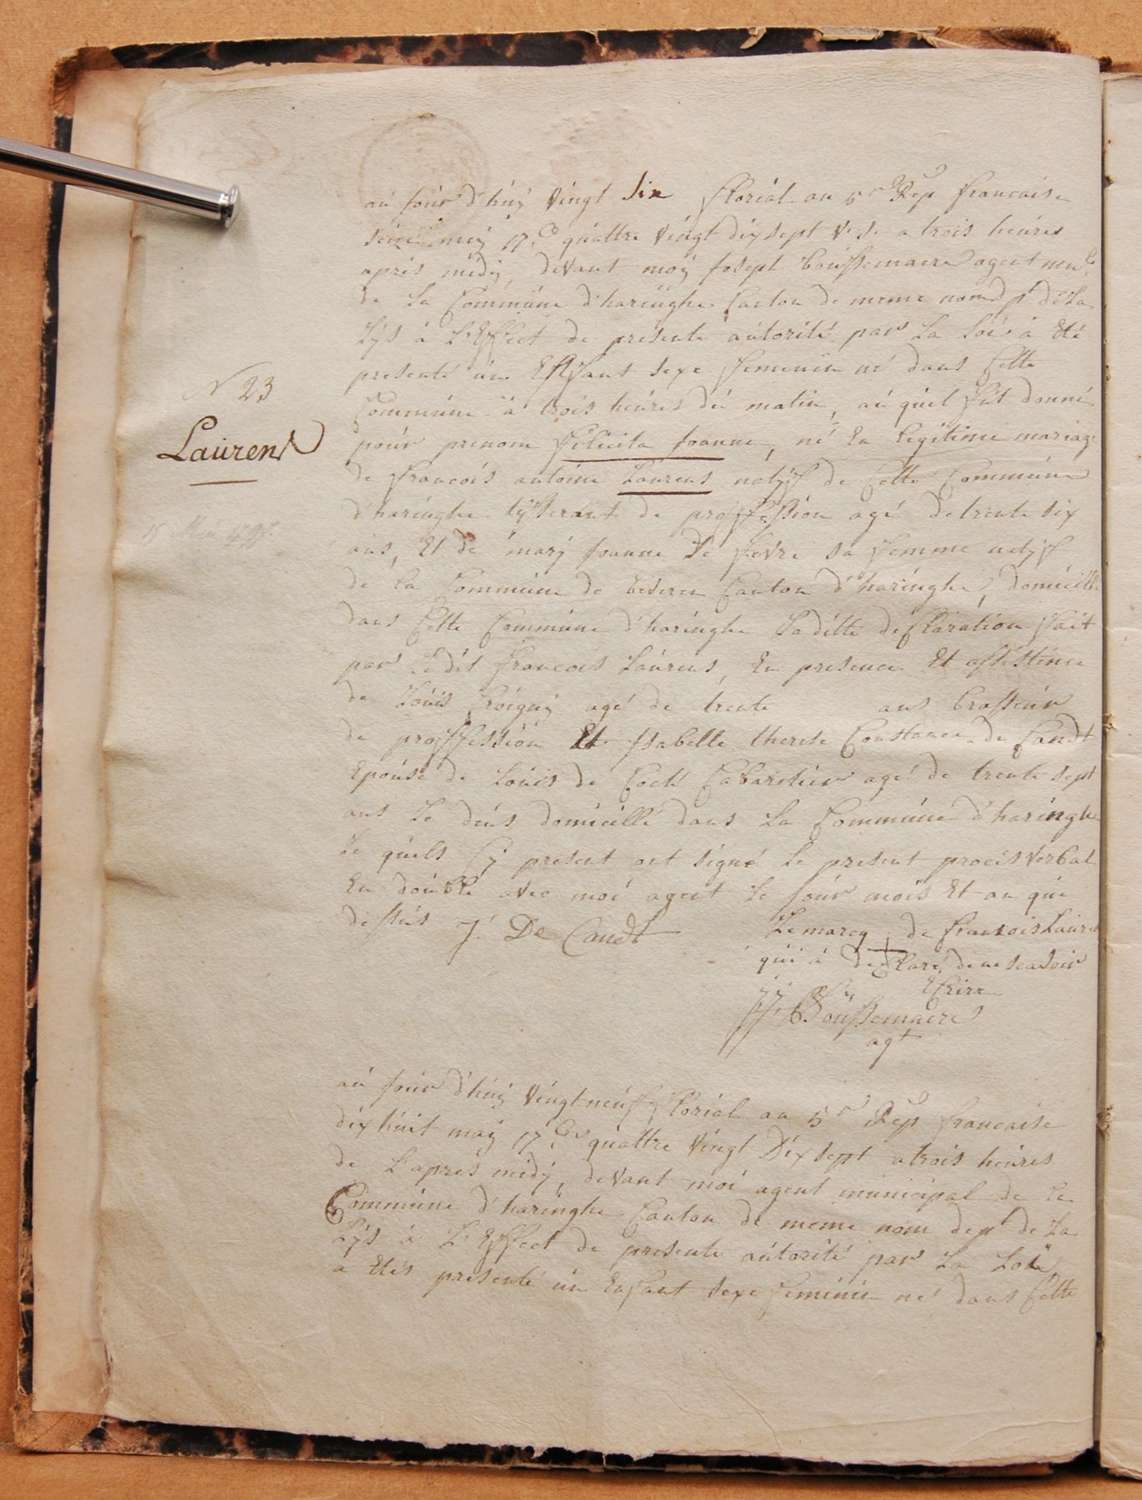 au jour d'huy vingt six florial an 5e Rep francaise
mey 17.C quattre vingt dix sept v. s. a trois heures
apres midy, devant moy Josept Boussemaere agent mu.l
de la Commune d'haringhe Canton de meme nom dep de La
Lys à L'Effect de présente autorité par La Loi a Eté
presenté un Enffant sexe femenin né dans Cette
Commune a trois heures du matin, au quel fut donné
pour prenom Felicita Joanne, né En legitime mariage
N 23
Laurens
de francois antoine Laurens natyf de Cette Commune
d'haringhe tysserant de proffession agé de trente six
ans, Et de mary Joanne De fevre sa femme natyf
15 Mai 1797
de La Commune de beveren Canton d'haringhe, domicillé
dans Cette Commune d'haringhe Laditte déClaration fait
par Ledit francois Laurens, En presence Et assistence
de Louis agé de trente ans brasseur
de proffession Et Isabelle therese Constance de Candt
Epouse de Louis de Cock Cabaretier agé de trente sept
ans Le deus domicillé dans La Commune d'haringhe
Le quels Cy present ont signé Le present proces verbal
En double avec moi agent Le jour mois Et an que
dessus J. De Candt
Le marcq + de francois Laurens
qui à declaré de ne scavoir
Ecrire
J J Boussemaere
agt
au jour d'huy vingt neuf florial an 5e Rep francaise
dix huit may 17.C quattre vingt Dix sept a trois heures
de L'aprés midy, devant moi agent municipal de La
Commune d'haringhe Canton de meme nom dep de La
Lys à L'Effect de presente autorité par La Loi
a Etés presenté un Enfant sexe feminin né dans Cette